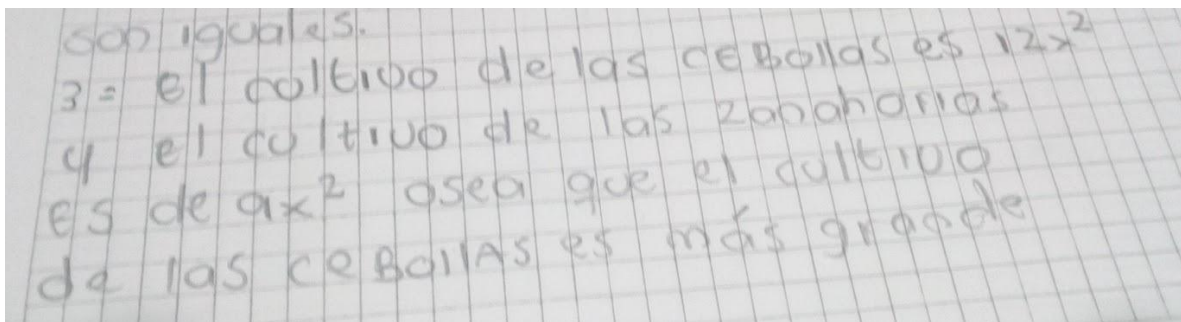 son iguales.
3= el coltivo de las ceBollas es 12x²
y el cultivo de las zanahorias
es de 9x² osea que el cultivo
de las ceBollAs es más grande